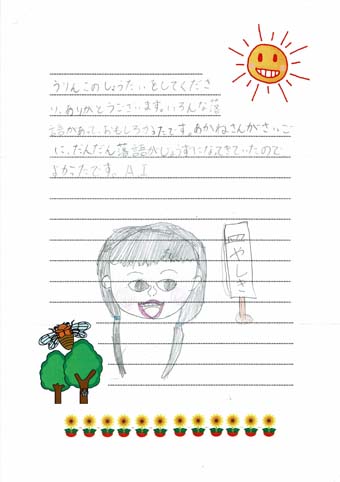 うりんこのしょうたいをしてくださ
り、ありがとうございます。いろんな落
語があって、おもしろかったです。あかねさんがさいご
に、だんだん落語がじょうずになってきていたので
よかったです。A I
やしき